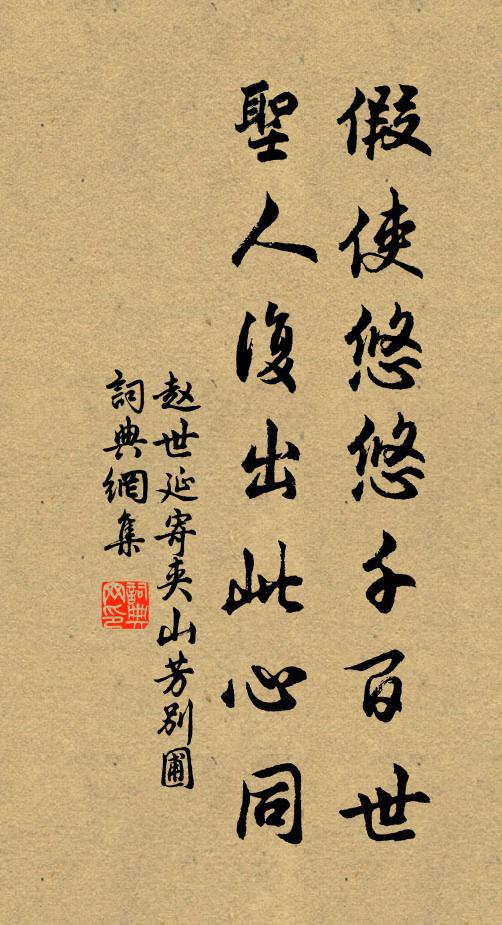 假使悠悠千百世
聖人復出此心同
赵世延寄夾山芳別圃
詞典網集
詞典网印